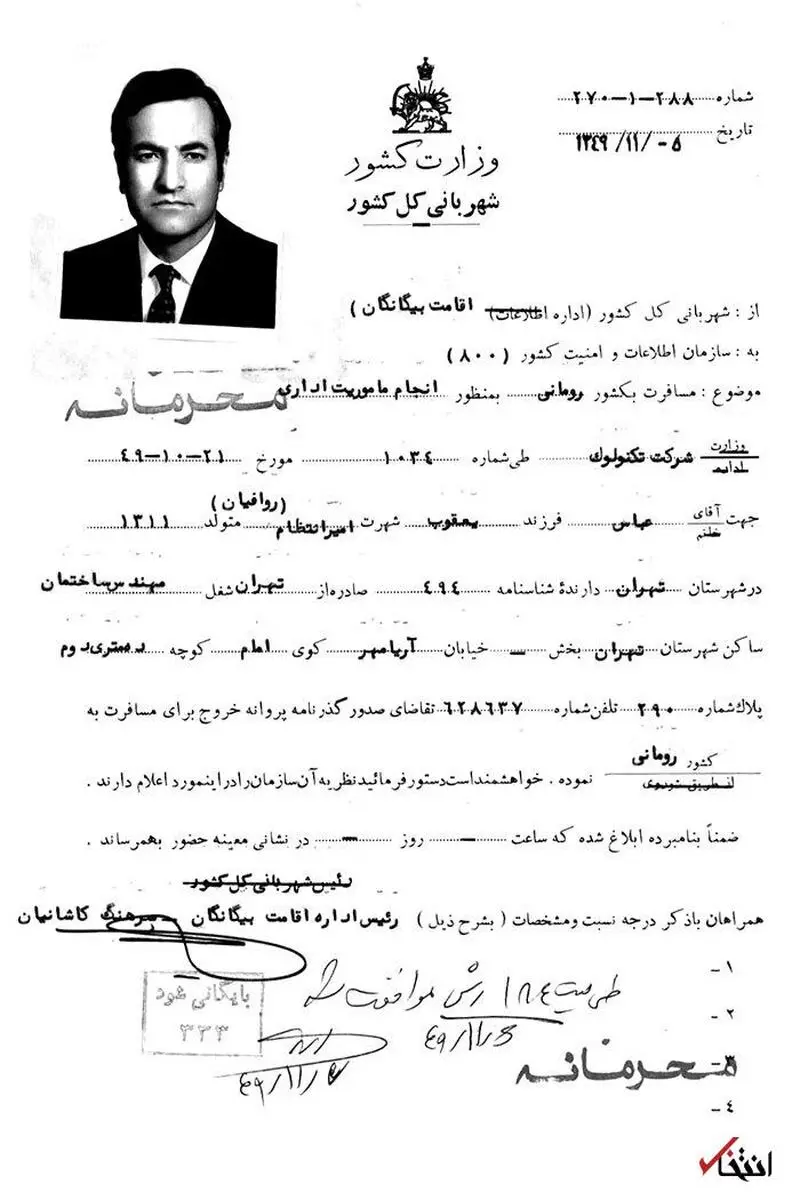 شماره ۲۷۰-۱-۲۸۸
تاریخ ۱۳۴۹/۱۱/-۵
وزارت کشور
شهربانی کل کشور
از : شهربانی کل کشور (اداره اطلاعات) اقامت بیگانگان )
به : سازمان اطلاعات و امنیت کشور ( ۸۰۰ )
موضوع : مسافرت بکشور رومانی بمنظور انجام ماموریت اداری
محرمانه
وزارت
اداره شرکت تکنولوک طی شماره ۱۰۳۴ مورخ ۲۱-۱۰-۴۹
(روافیان)
جهت آقای خانم عباس فرزند یعقوب شهرت امیرانتظام متولد ۱۳۱۱
در شهرستان تهران دارندهٔ شناسنامه ۴۹۴ صادره از تهران شغل مهندس ساختمان
ساکن شهرستان تهران بخش — خیابان آریامهر کوی امام کوچه رهستری دوم
پلاک شماره ۲۹۰ تلفن شماره ۶۲۸۶۳۷ تقاضای صدور گذرنامه پروانه خروج برای مسافرت به
کشور رومانی
نموده . خواهشمند است دستور فرمائید نظریه آن سازمان را در اینمورد اعلام دارند .
ضمناً بنامبرده ابلاغ شده که ساعت — روز — در نشانی معینه حضور بهمرساند .
رئیس شهربانی کل کشور
همراهان باذکر درجه نسبت و مشخصات ( بشرح ذیل ) رئیس اداره اقامت بیگانگان سرهنگ کاشانیان
۱-
۲-
۳-
۴-
موافقت
بایگانی شود
۳۳۳
محرمانه
انتخاب